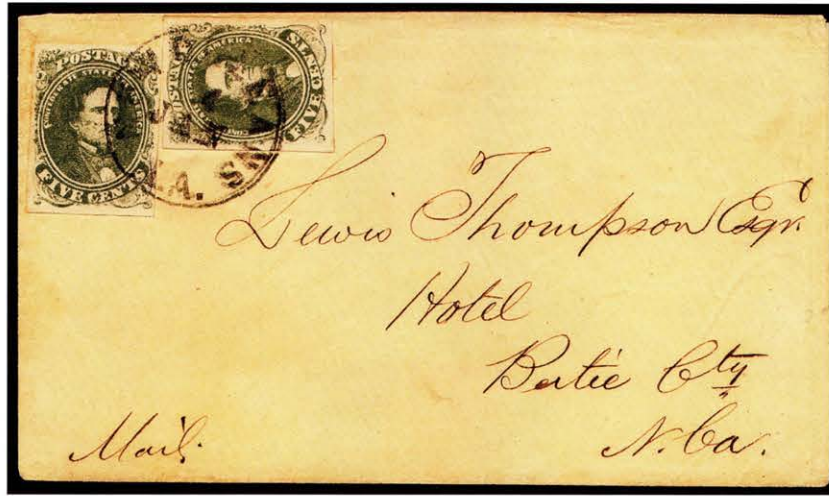 POSTAGE
CONFEDERATE STATES OF AMERICA
FIVE CENTS
POSTAGE
CONFEDERATE STATES OF AMERICA
FIVE CENTS
Lewis Thompson Esqr.
Hotel
Bertie Cty
N. Ca.
Mail.